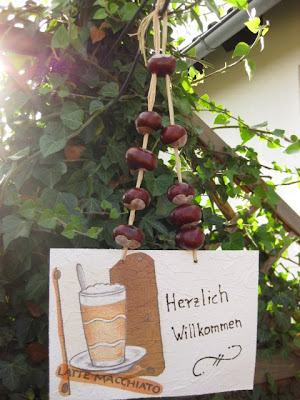 Herzlich
Willkommen
LATTE MACCHIATO